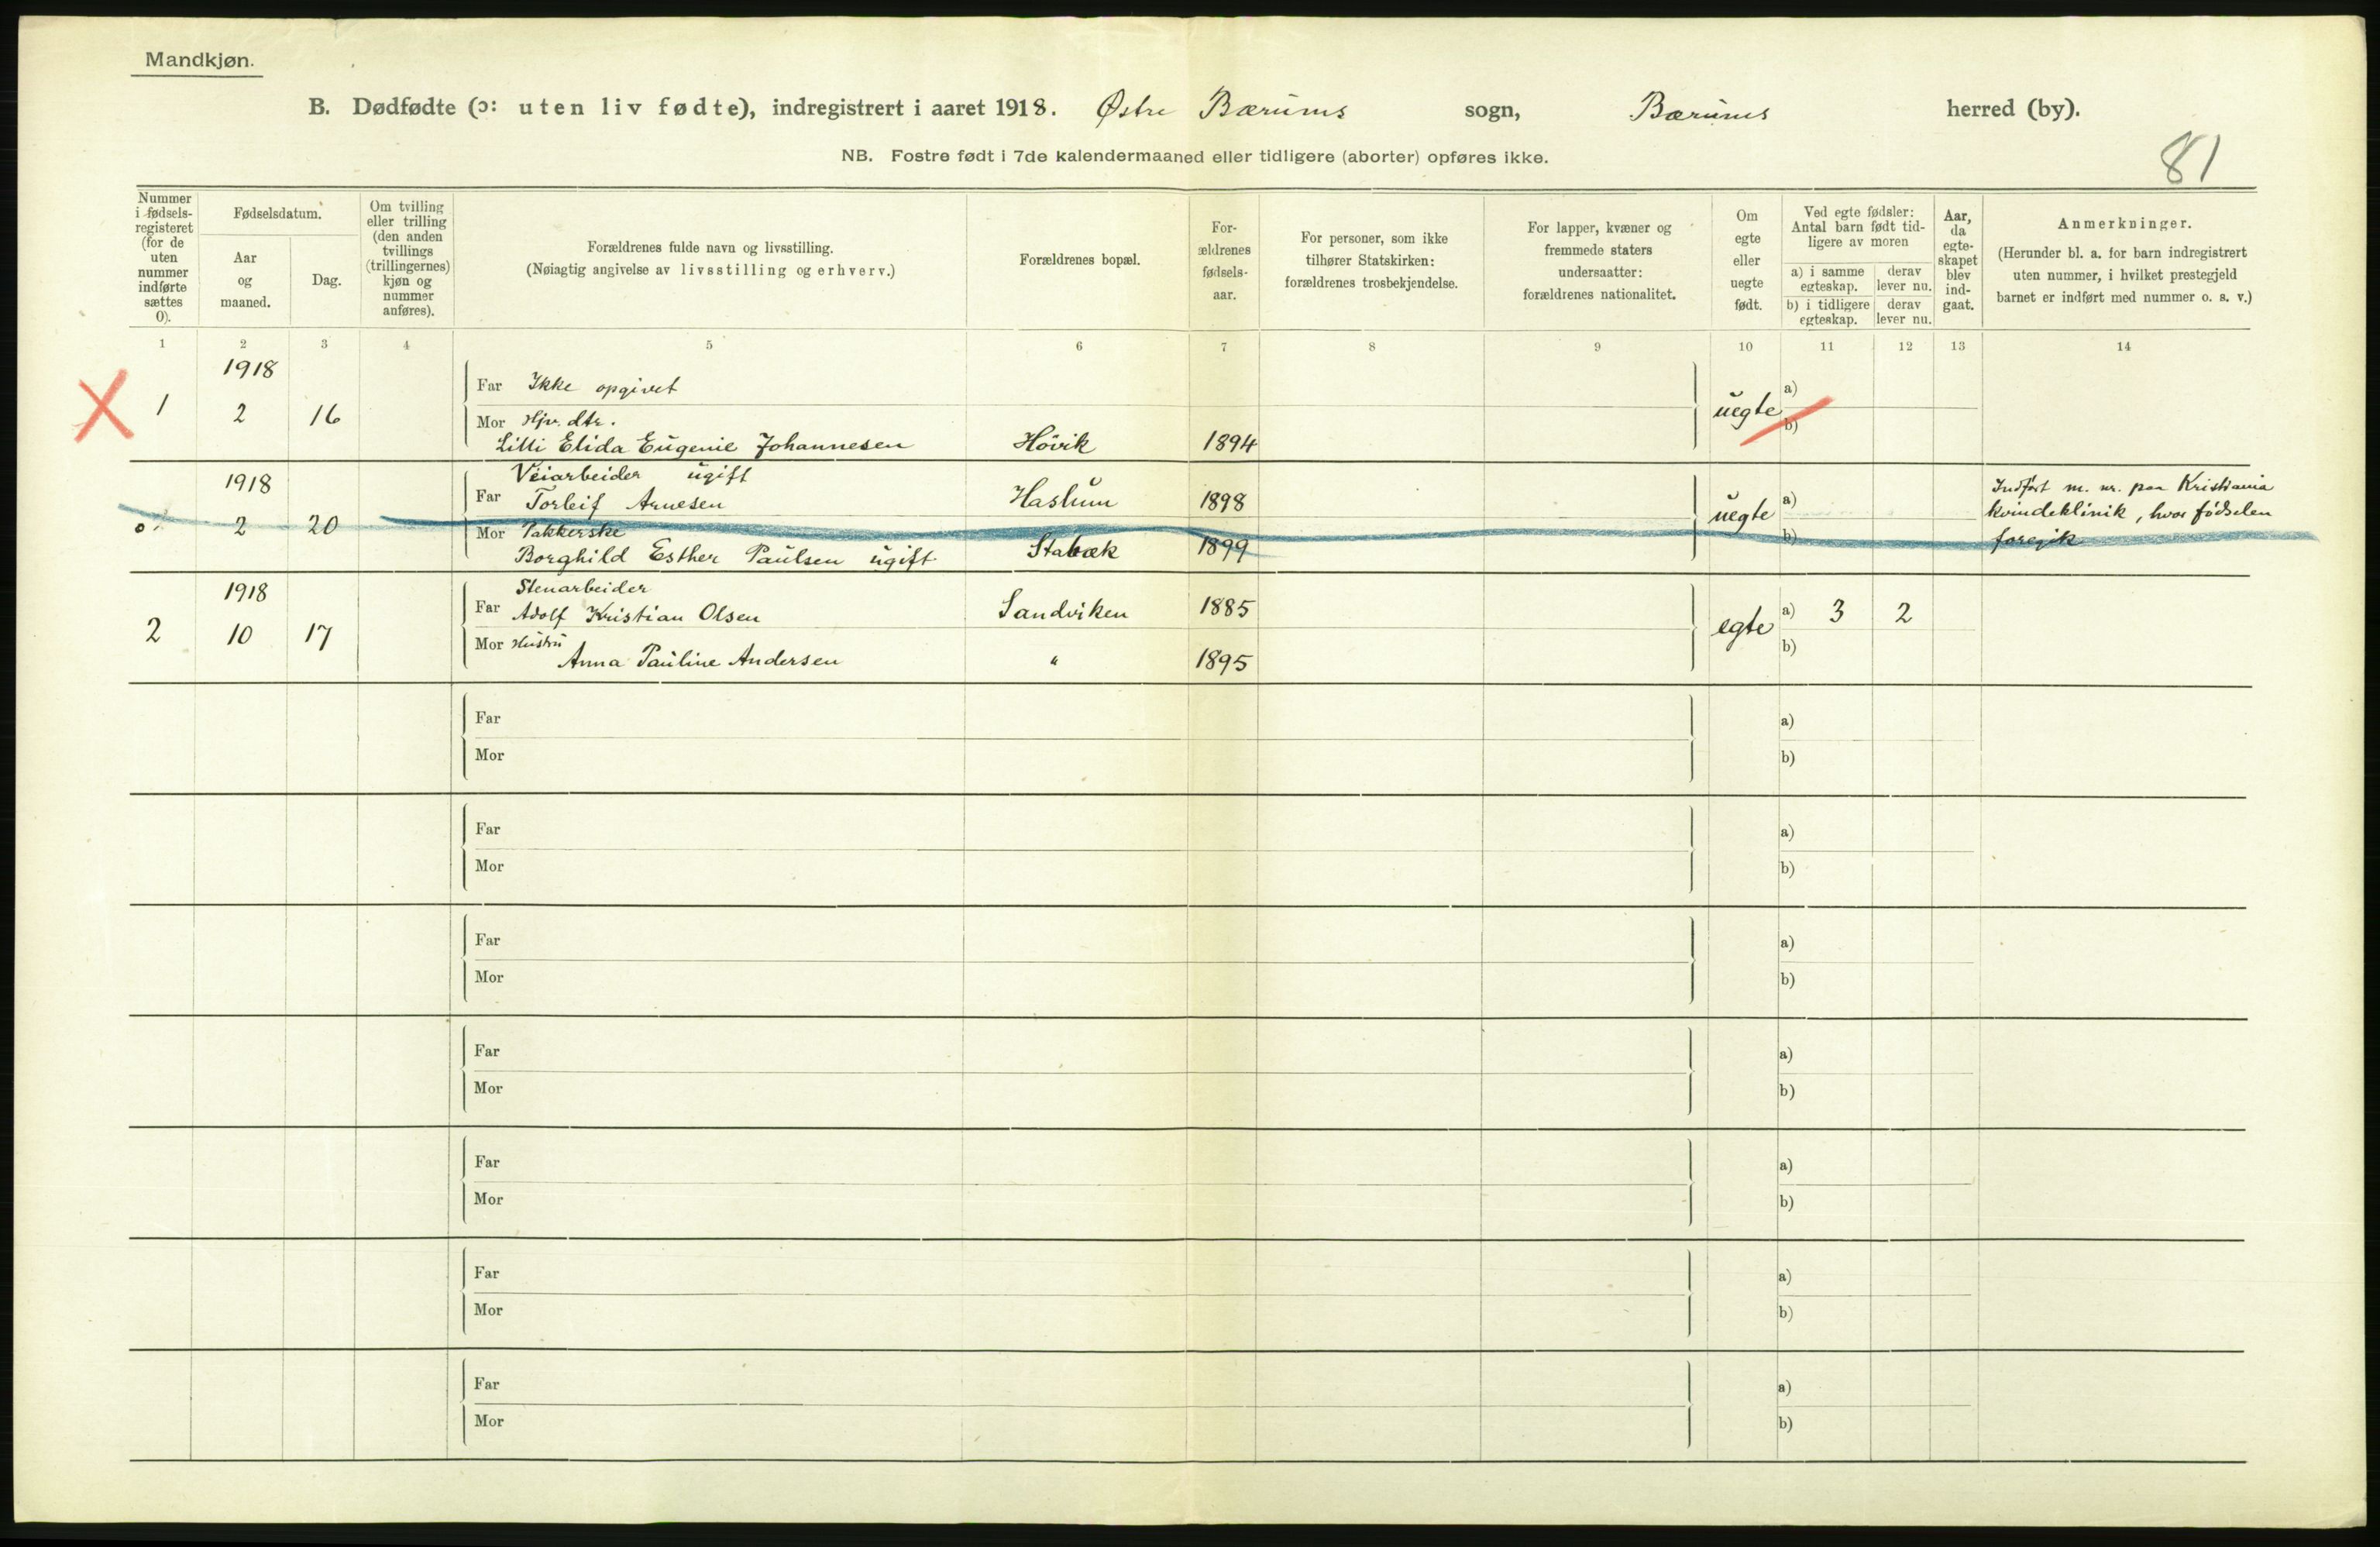 Mandkjøn.
B. Dødfødte (ɔ: uten liv fødte), indregistrert i aaret 1918. Østre Bærums sogn, Bærums herred (by).
NB. Fostre født i 7de kalendermaaned eller tidligere (aborter) opføres ikke.
81
Nummer
i fødsels-
registeret
(for de
uten
nummer
indførte
sættes
0).
Fødselsdatum.
Aar
og
maaned.
Dag.
Om tvilling
eller trilling
(den anden
tvillings
(trillingernes)
kjøn og
nummer
anføres).
Forældrenes fulde navn og livsstilling.
(Nøiagtig angivelse av livsstilling og erhverv.)
Forældrenes bopæl.
For-
ældrenes
fødsels-
aar.
For personer, som ikke
tilhører Statskirken:
forældrenes trosbekjendelse.
For lapper, kvæner og
fremmede staters
undersaatter:
forældrenes nationalitet.
Om
egte
eller
uegte
født.
Ved egte fødsler:
Antal barn født tid-
ligere av moren
a) i samme
egteskap.
derav
lever nu.
b) i tidligere
egteskap.
derav
lever nu.
Aar,
da
egte-
skapet
blev
ind-
gaat.
Anmerkninger.
(Herunder bl. a. for barn indregistrert
uten nummer, i hvilket prestegjeld
barnet er indført med nummer o. s. v.)
1 2 3 4 5 6 7 8 9 10 11 12 13 14
1918
1 2 16
Far Ikke opgivet
Mor Hjv. dtr.
Lilli Elida Eugenie Johannesen Høvik 1894
uegte
a)
b)
1918
0 2 20
Veiarbeider ugift
Far Torleif Arnesen Haslum 1898
Mor Pakkerske
Borghild Esther Paulsen ugift Stabæk 1899
uegte
a)
b)
Indført m. nr. paa Kristiania
kvindeklinik, hvor fødselen
foregik
1918
2 10 17
Stenarbeider
Far Adolf Kristian Olsen Sandviken 1885
Mor Hustru
Anna Pauline Andersen " 1895
egte
a) 3 2
b)
Far a)
Mor b)
Far a)
Mor b)
Far a)
Mor b)
Far a)
Mor b)
Far a)
Mor b)
Far a)
Mor b)
Far a)
Mor b)